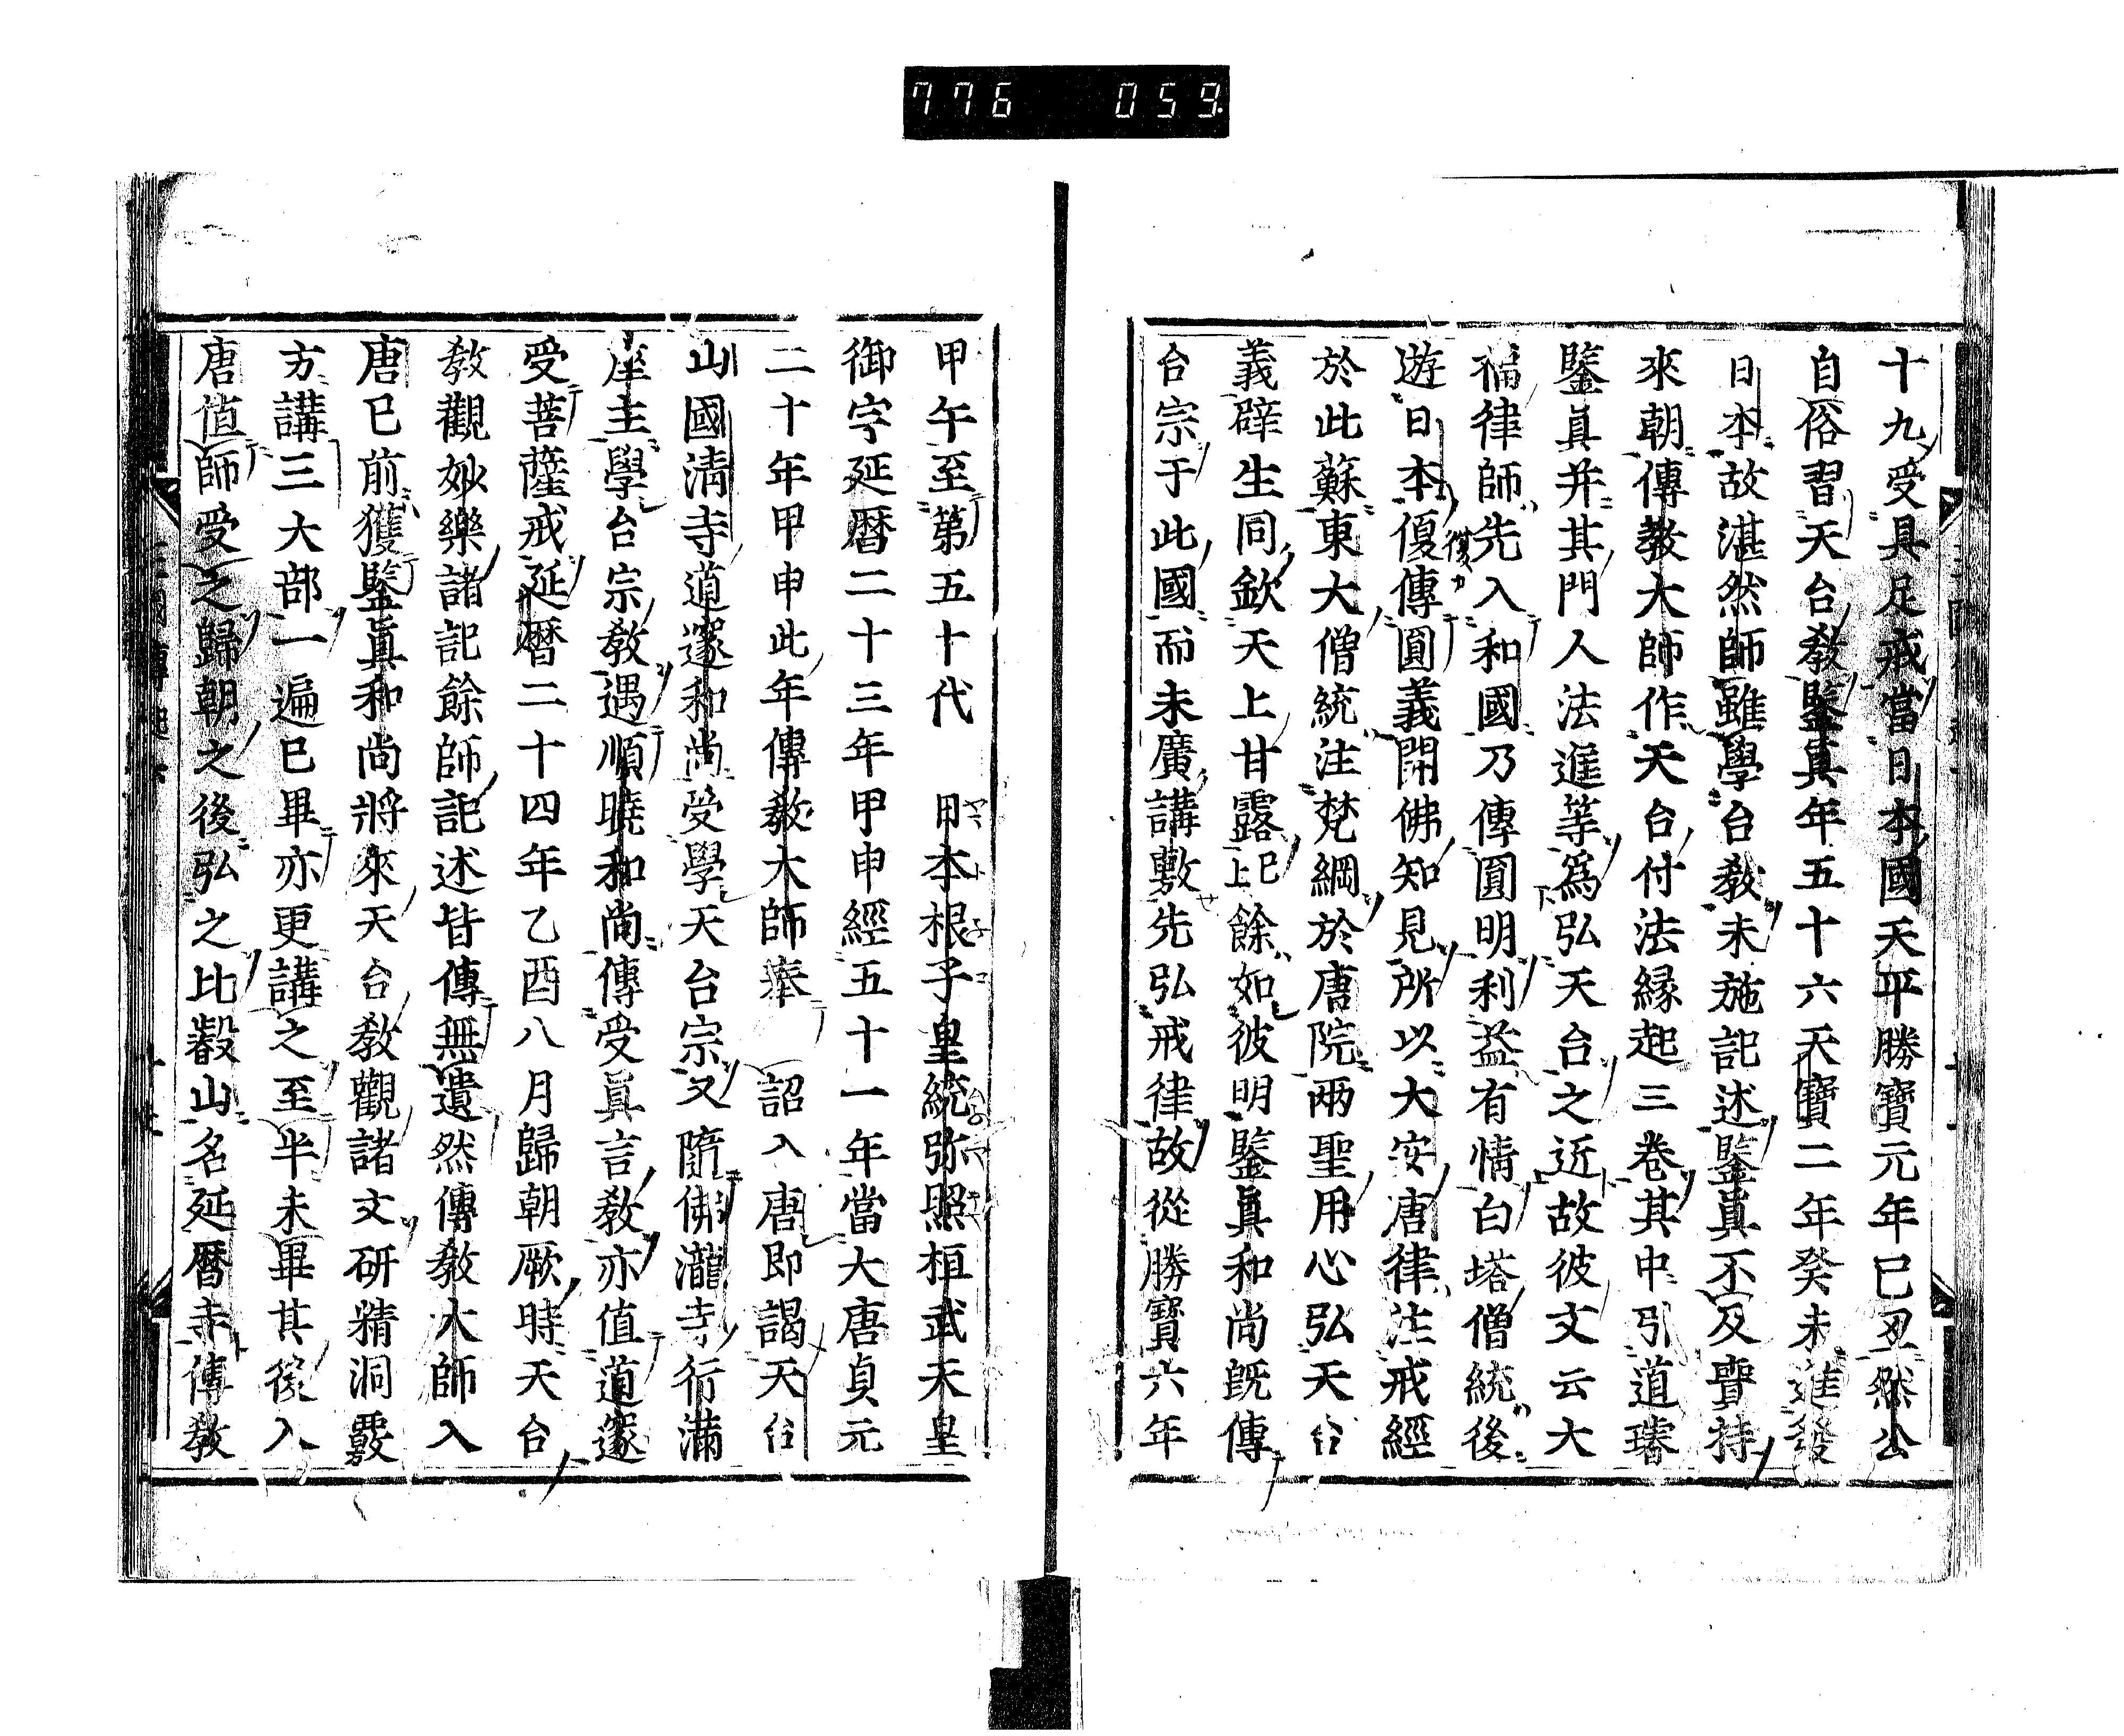 776 059
十九受具足戒當日本國天平勝寶元年己丑然公
自俗習天台教鑒眞年五十六天寶二年癸未進發
日本故湛然師雖學台教未施記述鑒眞不及賷持
來朝傳教大師作天台付法縁起三卷其中引道璿
鑒眞并其門人法進等爲弘天台之近故彼文云大
福律師先入和國乃傳圓明利益有情白塔僧統後
遊日本優傳圓義開佛知見所以大安唐律注戒經
於此蘇東大僧統注梵網於唐院兩聖用心弘天台
義辟生同欽天上甘露已上餘如彼明鑒眞和尚旣傳
台宗于此國而未廣講敷先弘戒律故從勝寶六年
甲午至第五十代 日本根子皇統弥照桓武天皇
御宇延暦二十三年甲申經五十一年當大唐貞元
二十年甲申此年傳教大師奉 詔入唐即謁天台
山國清寺道邃和尚受學天台宗又隨佛瀧寺行滿
座主學台宗教遇順曉和尚傳受眞言教亦值道邃
受菩薩戒延暦二十四年乙酉八月歸朝厥時天台
教觀妙樂諸記餘師記述皆傳無遺然傳教大師入
唐已前獲鑒眞和尚將來天台教觀諸文研精洞覈
方講三大部一遍已畢亦更講之至半未畢其後入
唐值師受之歸朝之後弘之比叡山名延暦寺傳教